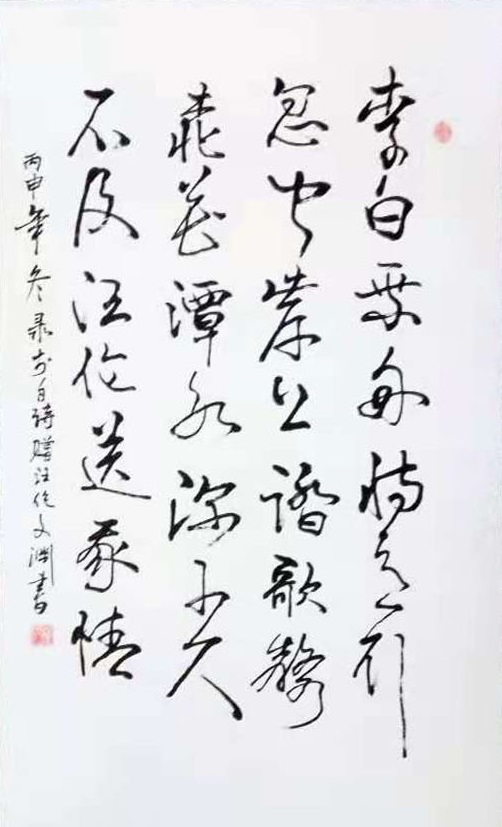 李白乘舟将欲行
忽闻岸上踏歌聲
桃花潭水深千尺
不及汪伦送我情
丙申年冬录李白诗赠汪伦文渊书